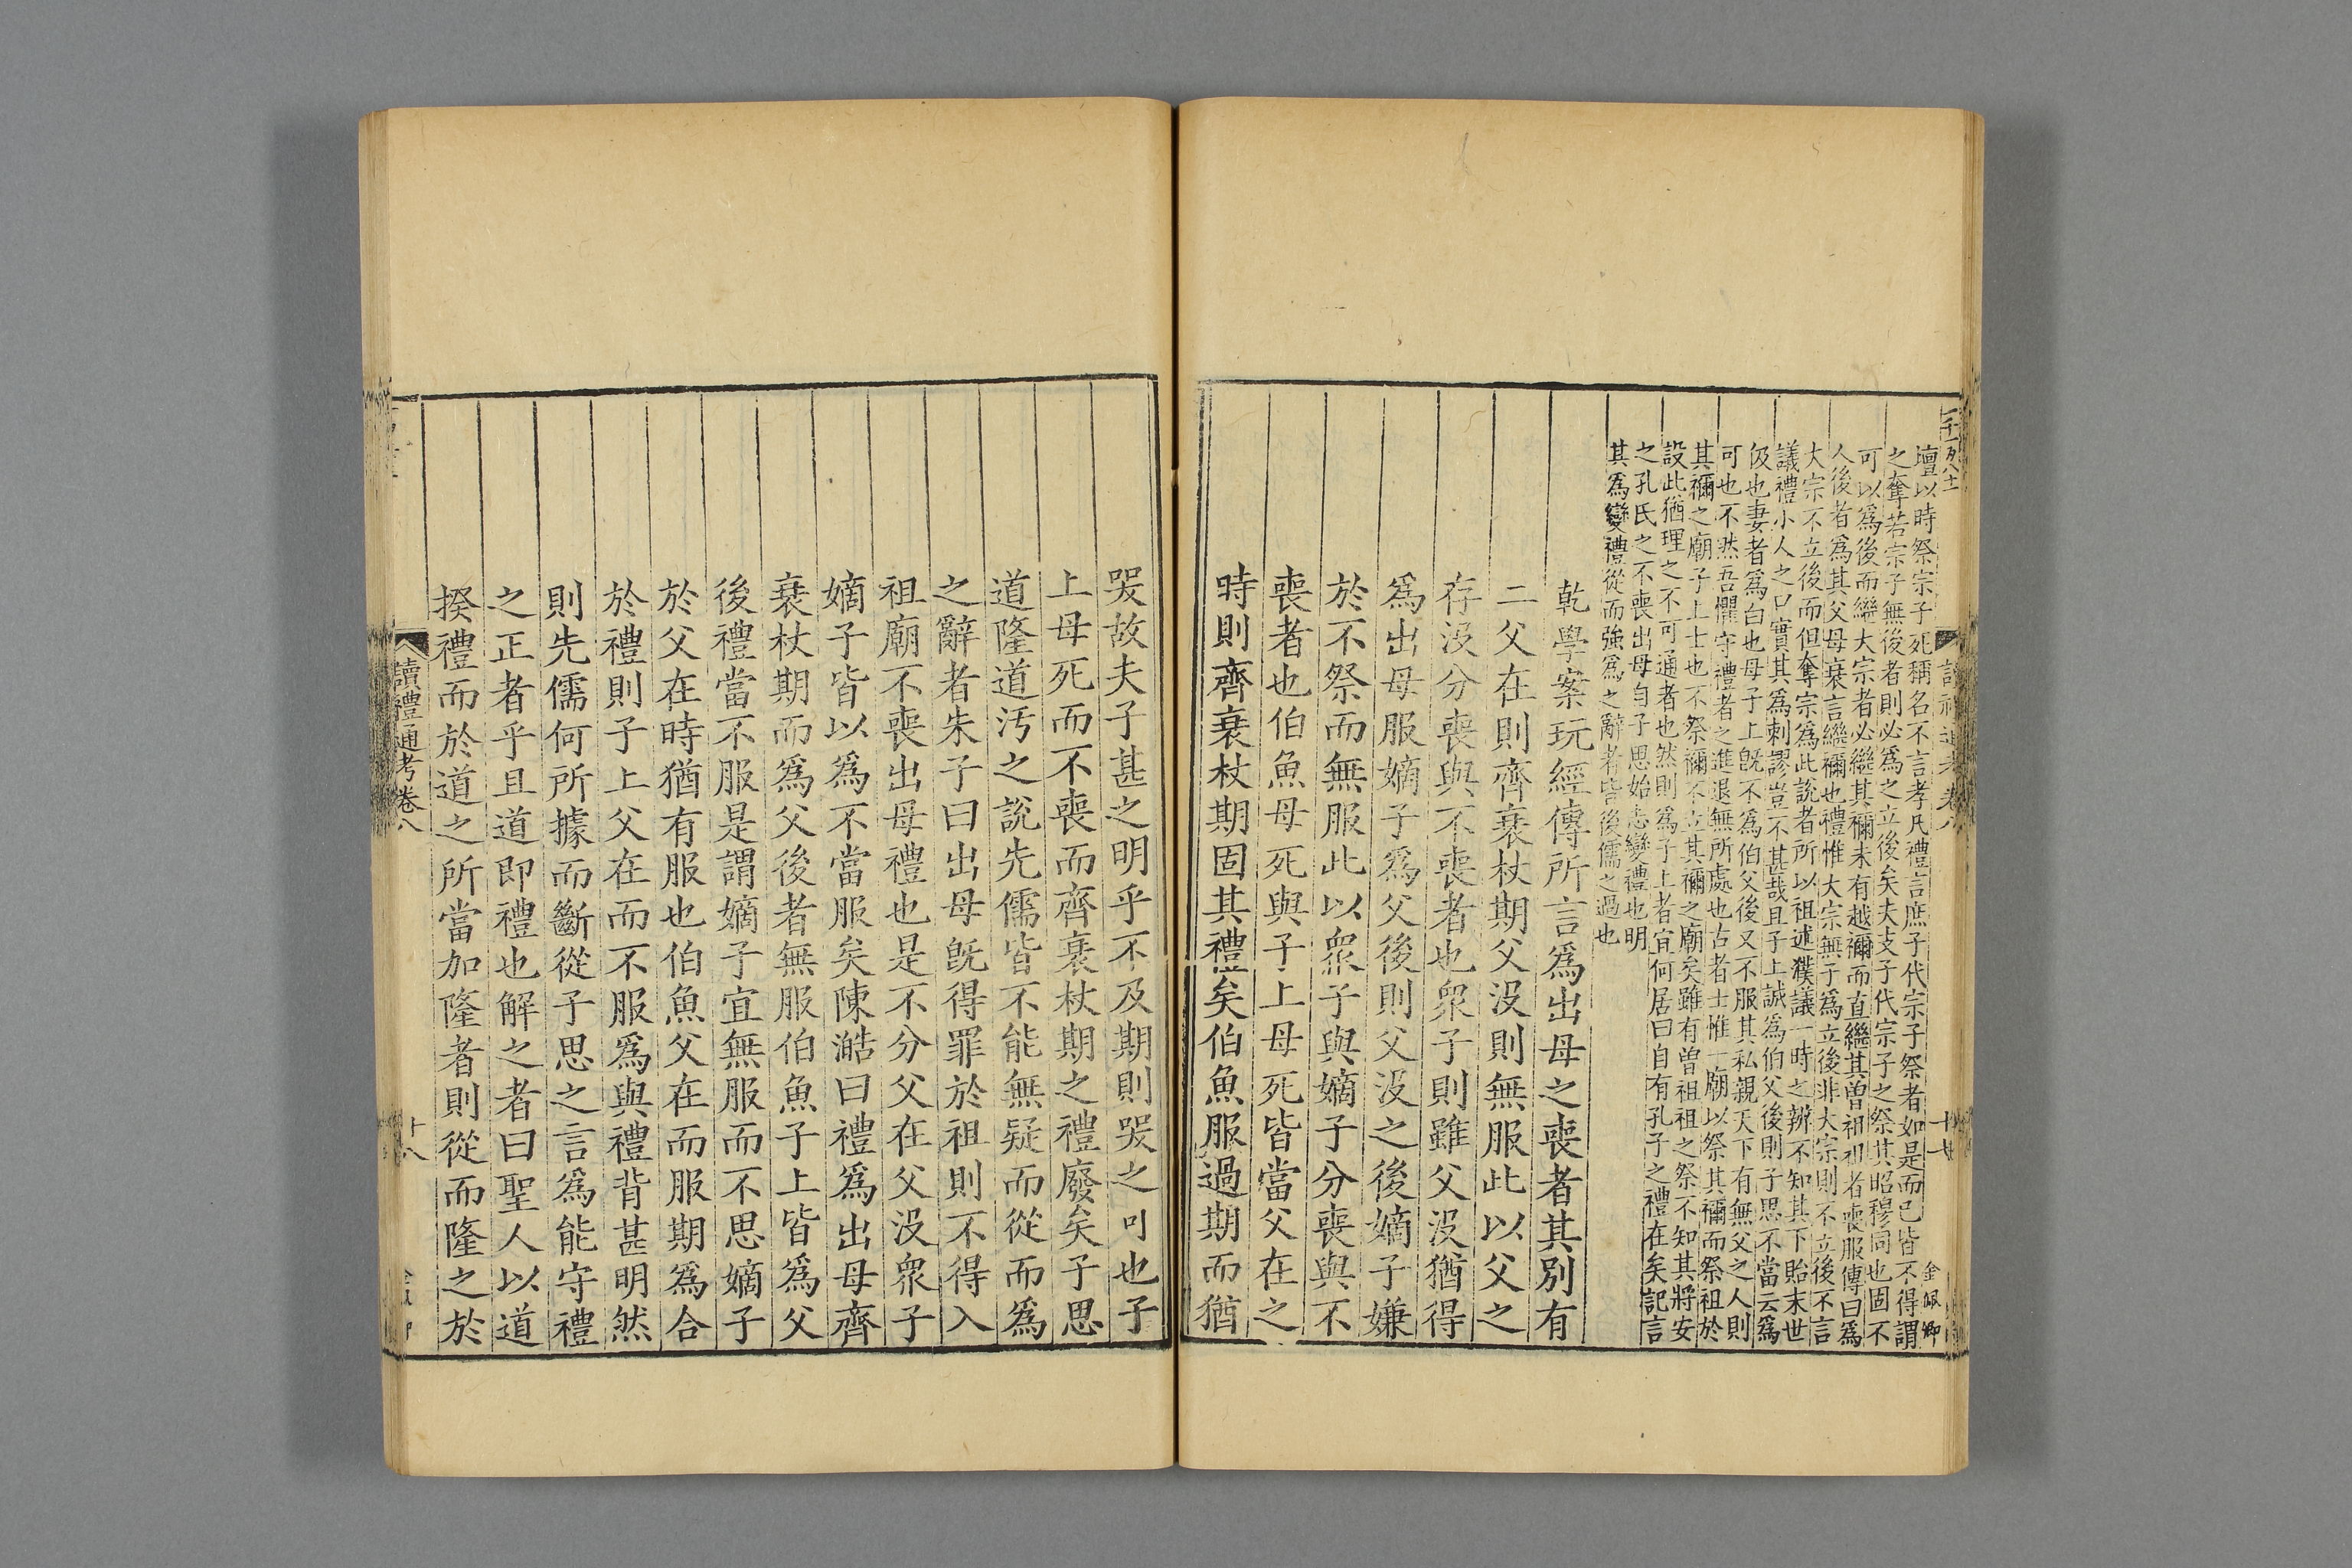 壇以時祭宗子死稱名不言孝凡禮言庶子代宗子祭者如是而已皆不得謂
之奪若宗子無後者則必為之立後矣夫支子代宗子之祭其昭穆同也固不
可以為後而繼大宗者必繼其禰未有越禰而直繼其曾祖祖者喪服傳曰為
人後者為其父母衰言繼禰也禮惟大宗無子為立後非大宗則不立後不言
大宗不立後而但奪宗為此說者所以祖述濮議一時之辨不知其下貽末世
議禮小人之口實其為刺謬豈不甚哉且子上誠為伯父後則子思不當云為
伋也妻者為白也母子上既不為伯父後又不服其私親天下有無父之人則
可也不然吾懼守禮者之進退無所處也古者士惟一廟以祭其禰而祭祖於
其禰之廟子上士也不祭禰不立其禰之廟矣雖有曾祖祖之祭不知其將安
設此猶理之不可通者也然則為子上者宜何居曰自有孔子之禮在矣記言
之孔氏之不喪出母自子思始志變禮也明
其為變禮從而強為之辭者皆後儒之過也
乾學案玩經傳所言為出母之喪者其別有
二父在則齊衰杖期父沒則無服此以父之
存沒分喪與不喪者也眾子則雖父沒猶得
為出母服嫡子為父後則父沒之後嫡子嫌
於不祭而無服此以眾子與嫡子分喪與不
喪者也伯魚母死與子上母死皆當父在之
時則齊衰杖期固其禮矣伯魚服過期而猶
哭故夫子甚之明乎不及期則哭之可也子
上母死而不喪而齊衰杖期之禮廢矣子思
道隆道汚之說先儒皆不能無疑而從而為
之辭者朱子曰出母既得罪於祖則不得入
祖廟不喪出母禮也是不分父在父沒眾子
嫡子皆以為不當服矣陳澔曰禮為出母齊
衰杖期而為父後者無服伯魚子上皆為父
後禮當不服是謂嫡子宜無服而不思嫡子
於父在時猶有服也伯魚父在而服期為合
於禮則子上父在而不服為與禮背甚明然
則先儒何所據而斷從子思之言為能守禮
之正者乎且道即禮也解之者曰聖人以道
揆禮而於道之所當加隆者則從而隆之於
讀禮通考卷八
十八